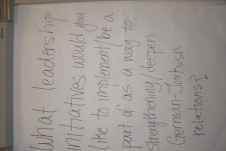 What leadership
initiatives would you
like to implement/be a
part of as a way to
strengthening/deepen
German-Turkish
relations?